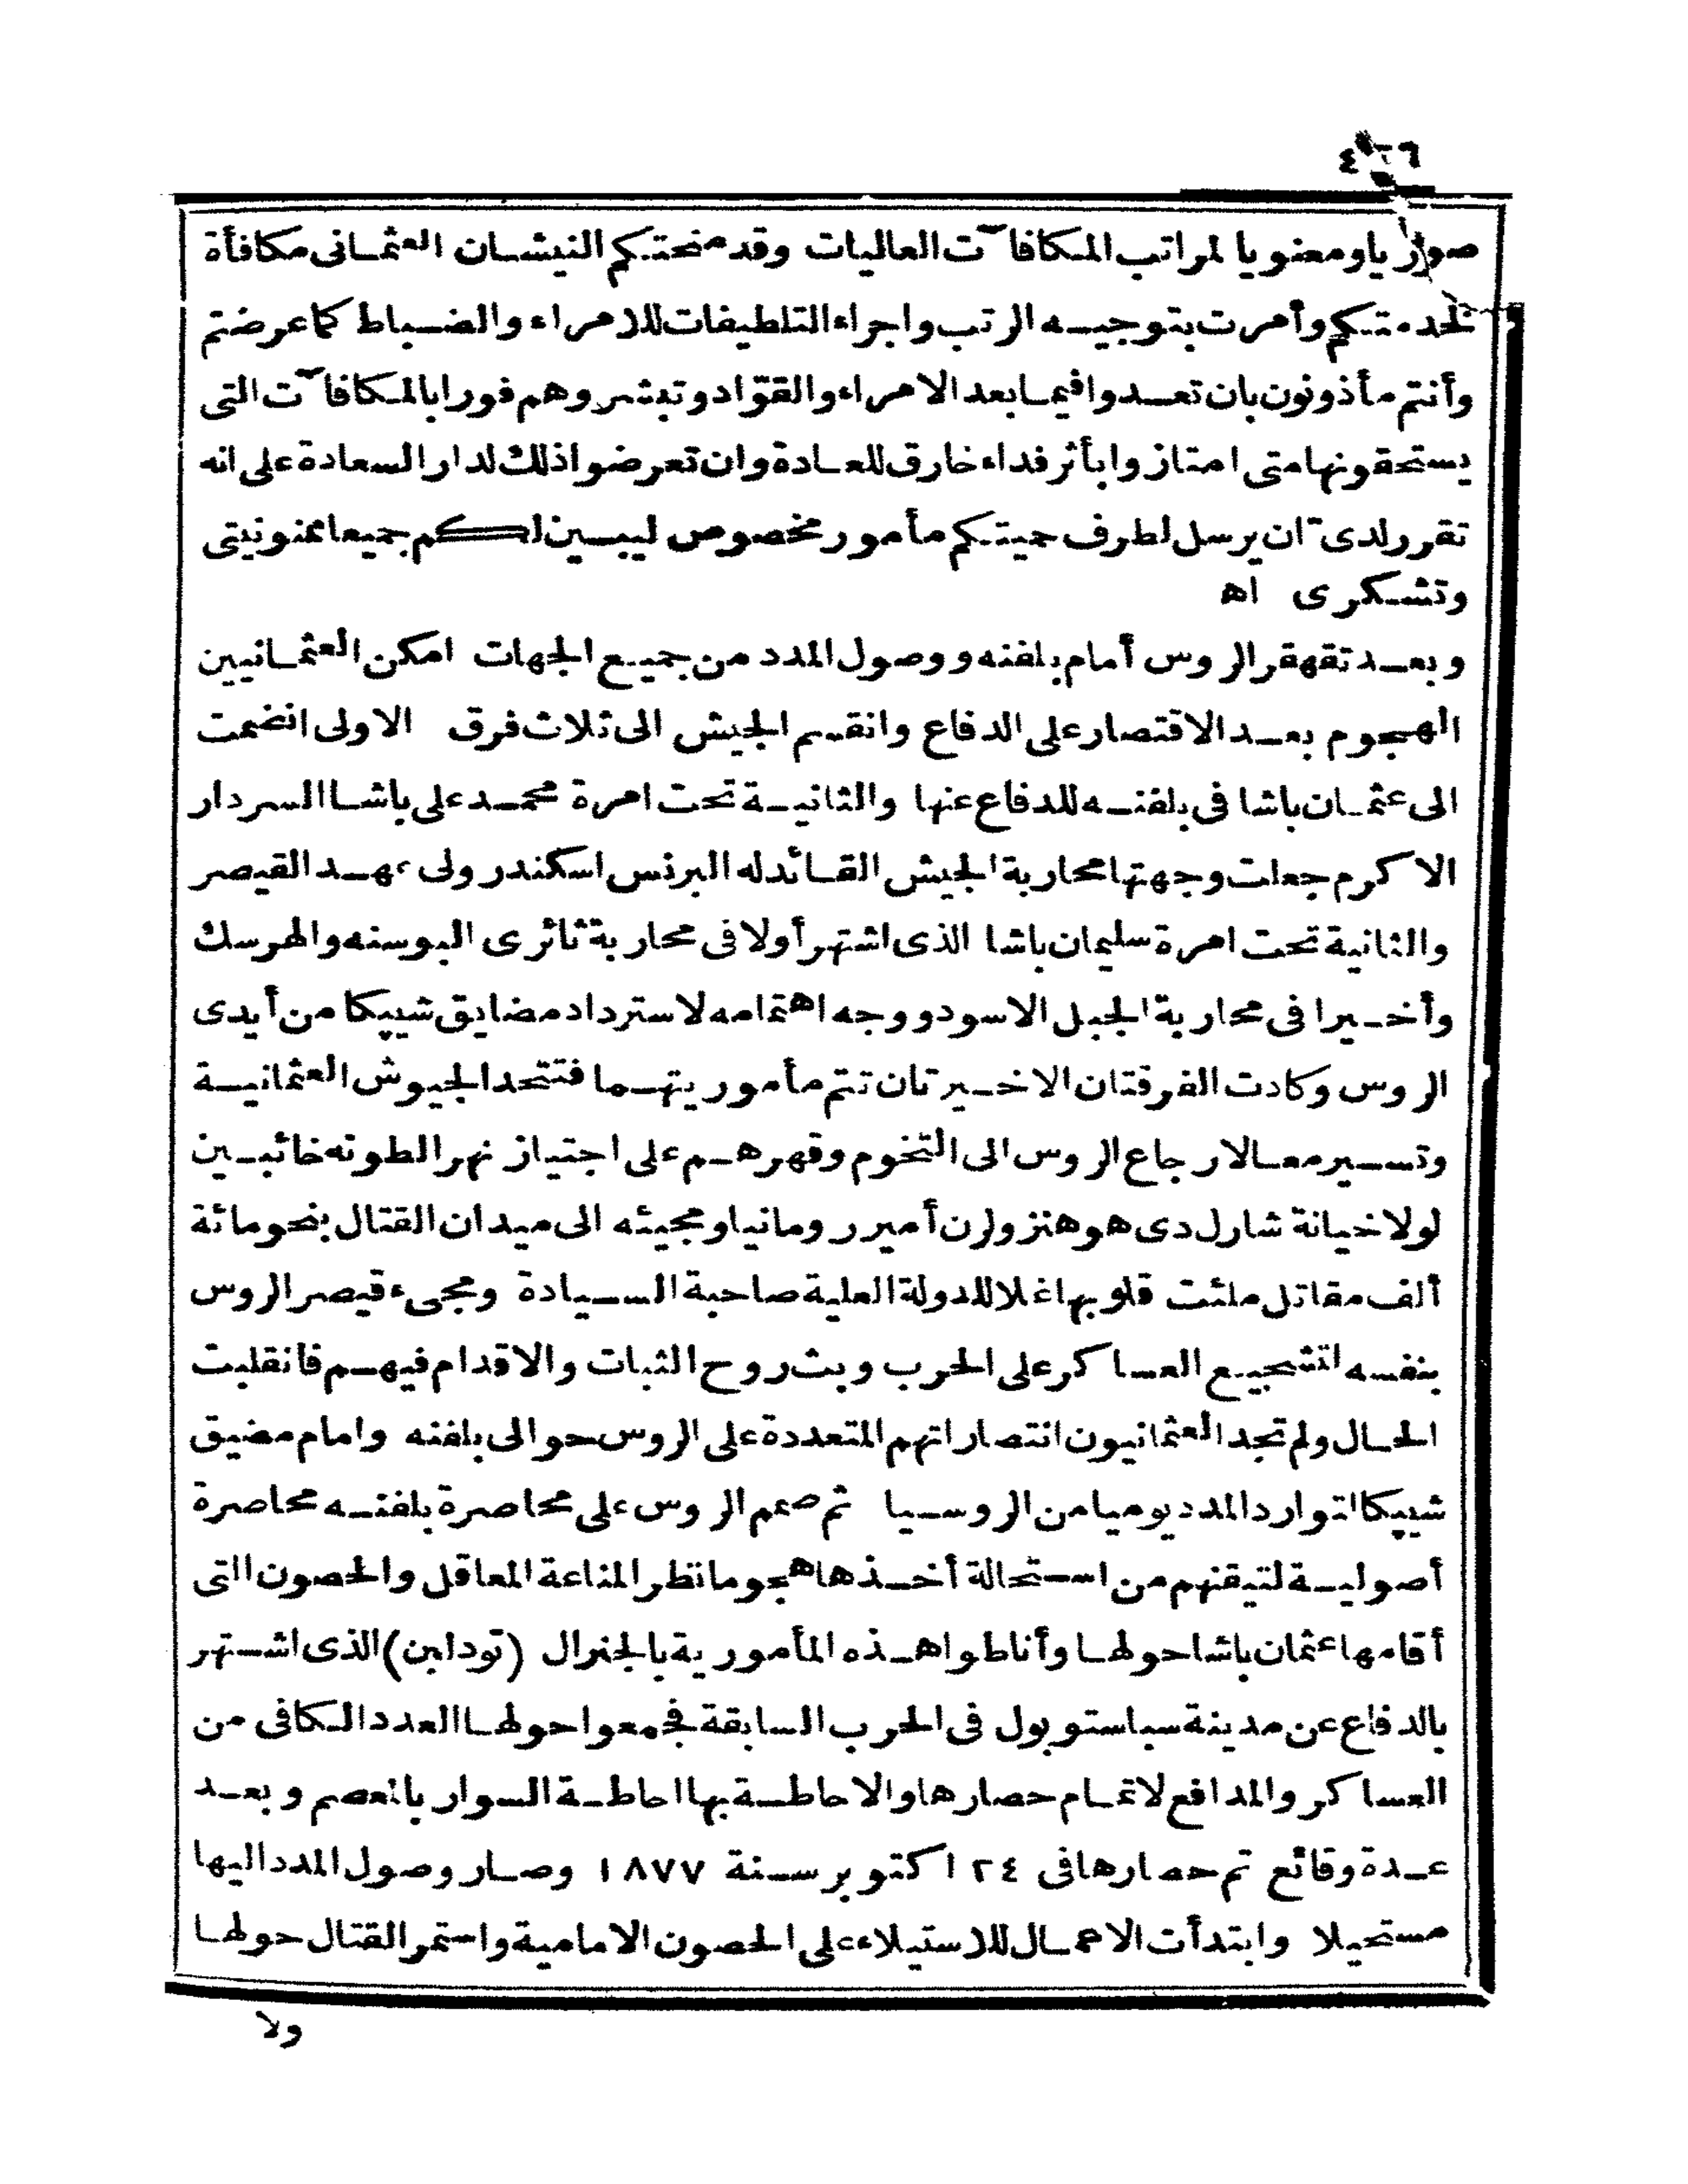 صوريا ومعنويا لمراتب المكافآت العاليات وقد منحتكم النيشان العثمانى مكافأة
لخدمتكم وأمرت بتوجيه الرتب واجراء التلطيفات للامراء والضباط كما عرضتم
وأنتم مأذونون بان تعدوا فيما بعد الامراء والقوّاد وتبشروهم فورا بالمكافآت التى
يستحقونها متى امتازوا بأثر فداء خارق للعادة وان تعرضوا ذلك لدار السعادة على انه
تقرر لدىّ ان يرسل لطرف حميتكم مأمور مخصوص ليبين لكم جميعا ممنونيتى
وتشكرى اه
وبعد تقهقر الروس أمام بلفنه ووصول المدد من جميع الجهات امكن العثمانيين
الهجوم بعد الاقتصار على الدفاع وانقسم الجيش الى ثلاث فرق الاولى انضمت
الى عثمان باشا فى بلفنه للدفاع عنها والثانية تحت امرة محمد على باشا السردار
الاكرم جعلت وجهتها محاربة الجيش القائد له البرنس اسكندر ولى عهد القيصر
والثانية تحت امرة سليمان باشا الذى اشتهر أولا فى محاربة ثائرى البوسنه والهرسك
وأخيرا فى محاربة الجبل الاسود ووجه اهتمامه لاسترداد مضايق شيپكا من أيدى
الروس وكادت الفرقتان الاخيرتان تتم مأموريتهما فتتحد الجيوش العثمانية
وتسير معا لارجاع الروس الى التخوم وقهرهم على اجتياز نهر الطونه خائبين
لولا خيانة شارل دى هوهنزولرن أمير رومانيا ومجيئه الى ميدان القتال بنحو مائة
ألف مقاتل ملئت قلوبها غلا للدولة العلية صاحبة السيادة ومجىء قيصر الروس
بنفسه لتشجيع العساكر على الحرب وبث روح الثبات والاقدام فيهم فانقلبت
الحال ولم تجد العثمانيون انتصاراتهم المتعددة على الروس حوالى بلفنه وامام مضيق
شيپكا لتوارد المدد يوميا من الروسيا ثم صمم الروس على محاصرة بلفنه محاصرة
أصولية لتيقنهم من استحالة أخذها هجوما نظر المناعة المعاقل والحصون التى
أقامها عثمان باشا حولها وأناطوا هذه المأمورية بالجنرال (تودلبن) الذى اشتهر
بالدفاع عن مدينة سباستوبول فى الحرب السابقة فجمعوا حولها العدد الكافى من
العساكر والمدافع لاتمام حصارها والاحاطة بها احاطة السوار بالمعصم وبعد
عدة وقائع تم حصارها فى ٢٤ اكتوبر سنة ١٨٧٧ وصار وصول المدد اليها
مستحيلا وابتدأت الاعمال للاستيلاء على الحصون الامامية واستمر القتال حولها
ولا